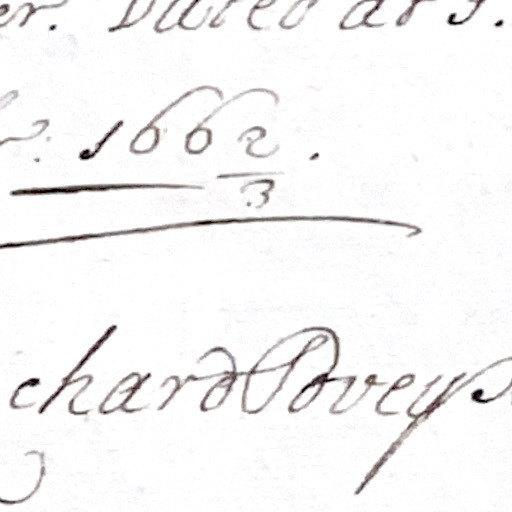 er. Dated at S.
r: 1662/3.
chard Povey